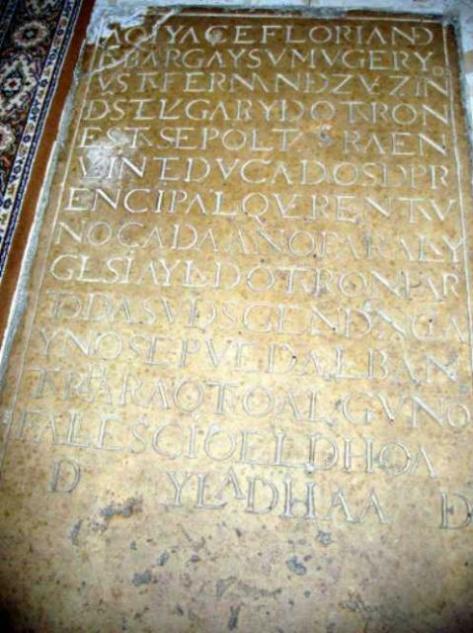 AQIYACEFLORIAND
BARGAYSVMVGERY
VSTFERNANDZVZIN
DSTLVGARYDOTRON
ESTSEPOLT RAEN
VEINTEDVCADOSDPR
ENCIPALQVERENTAV
NOCADAANOPARALY
GLSIAYLDOTRONPAR
TDDASVDSCENDNCIA
YNOSEPVEDALBAN
TPARAOTOALGVNO
FALLESCIOELDHOA
D YLADHAA D